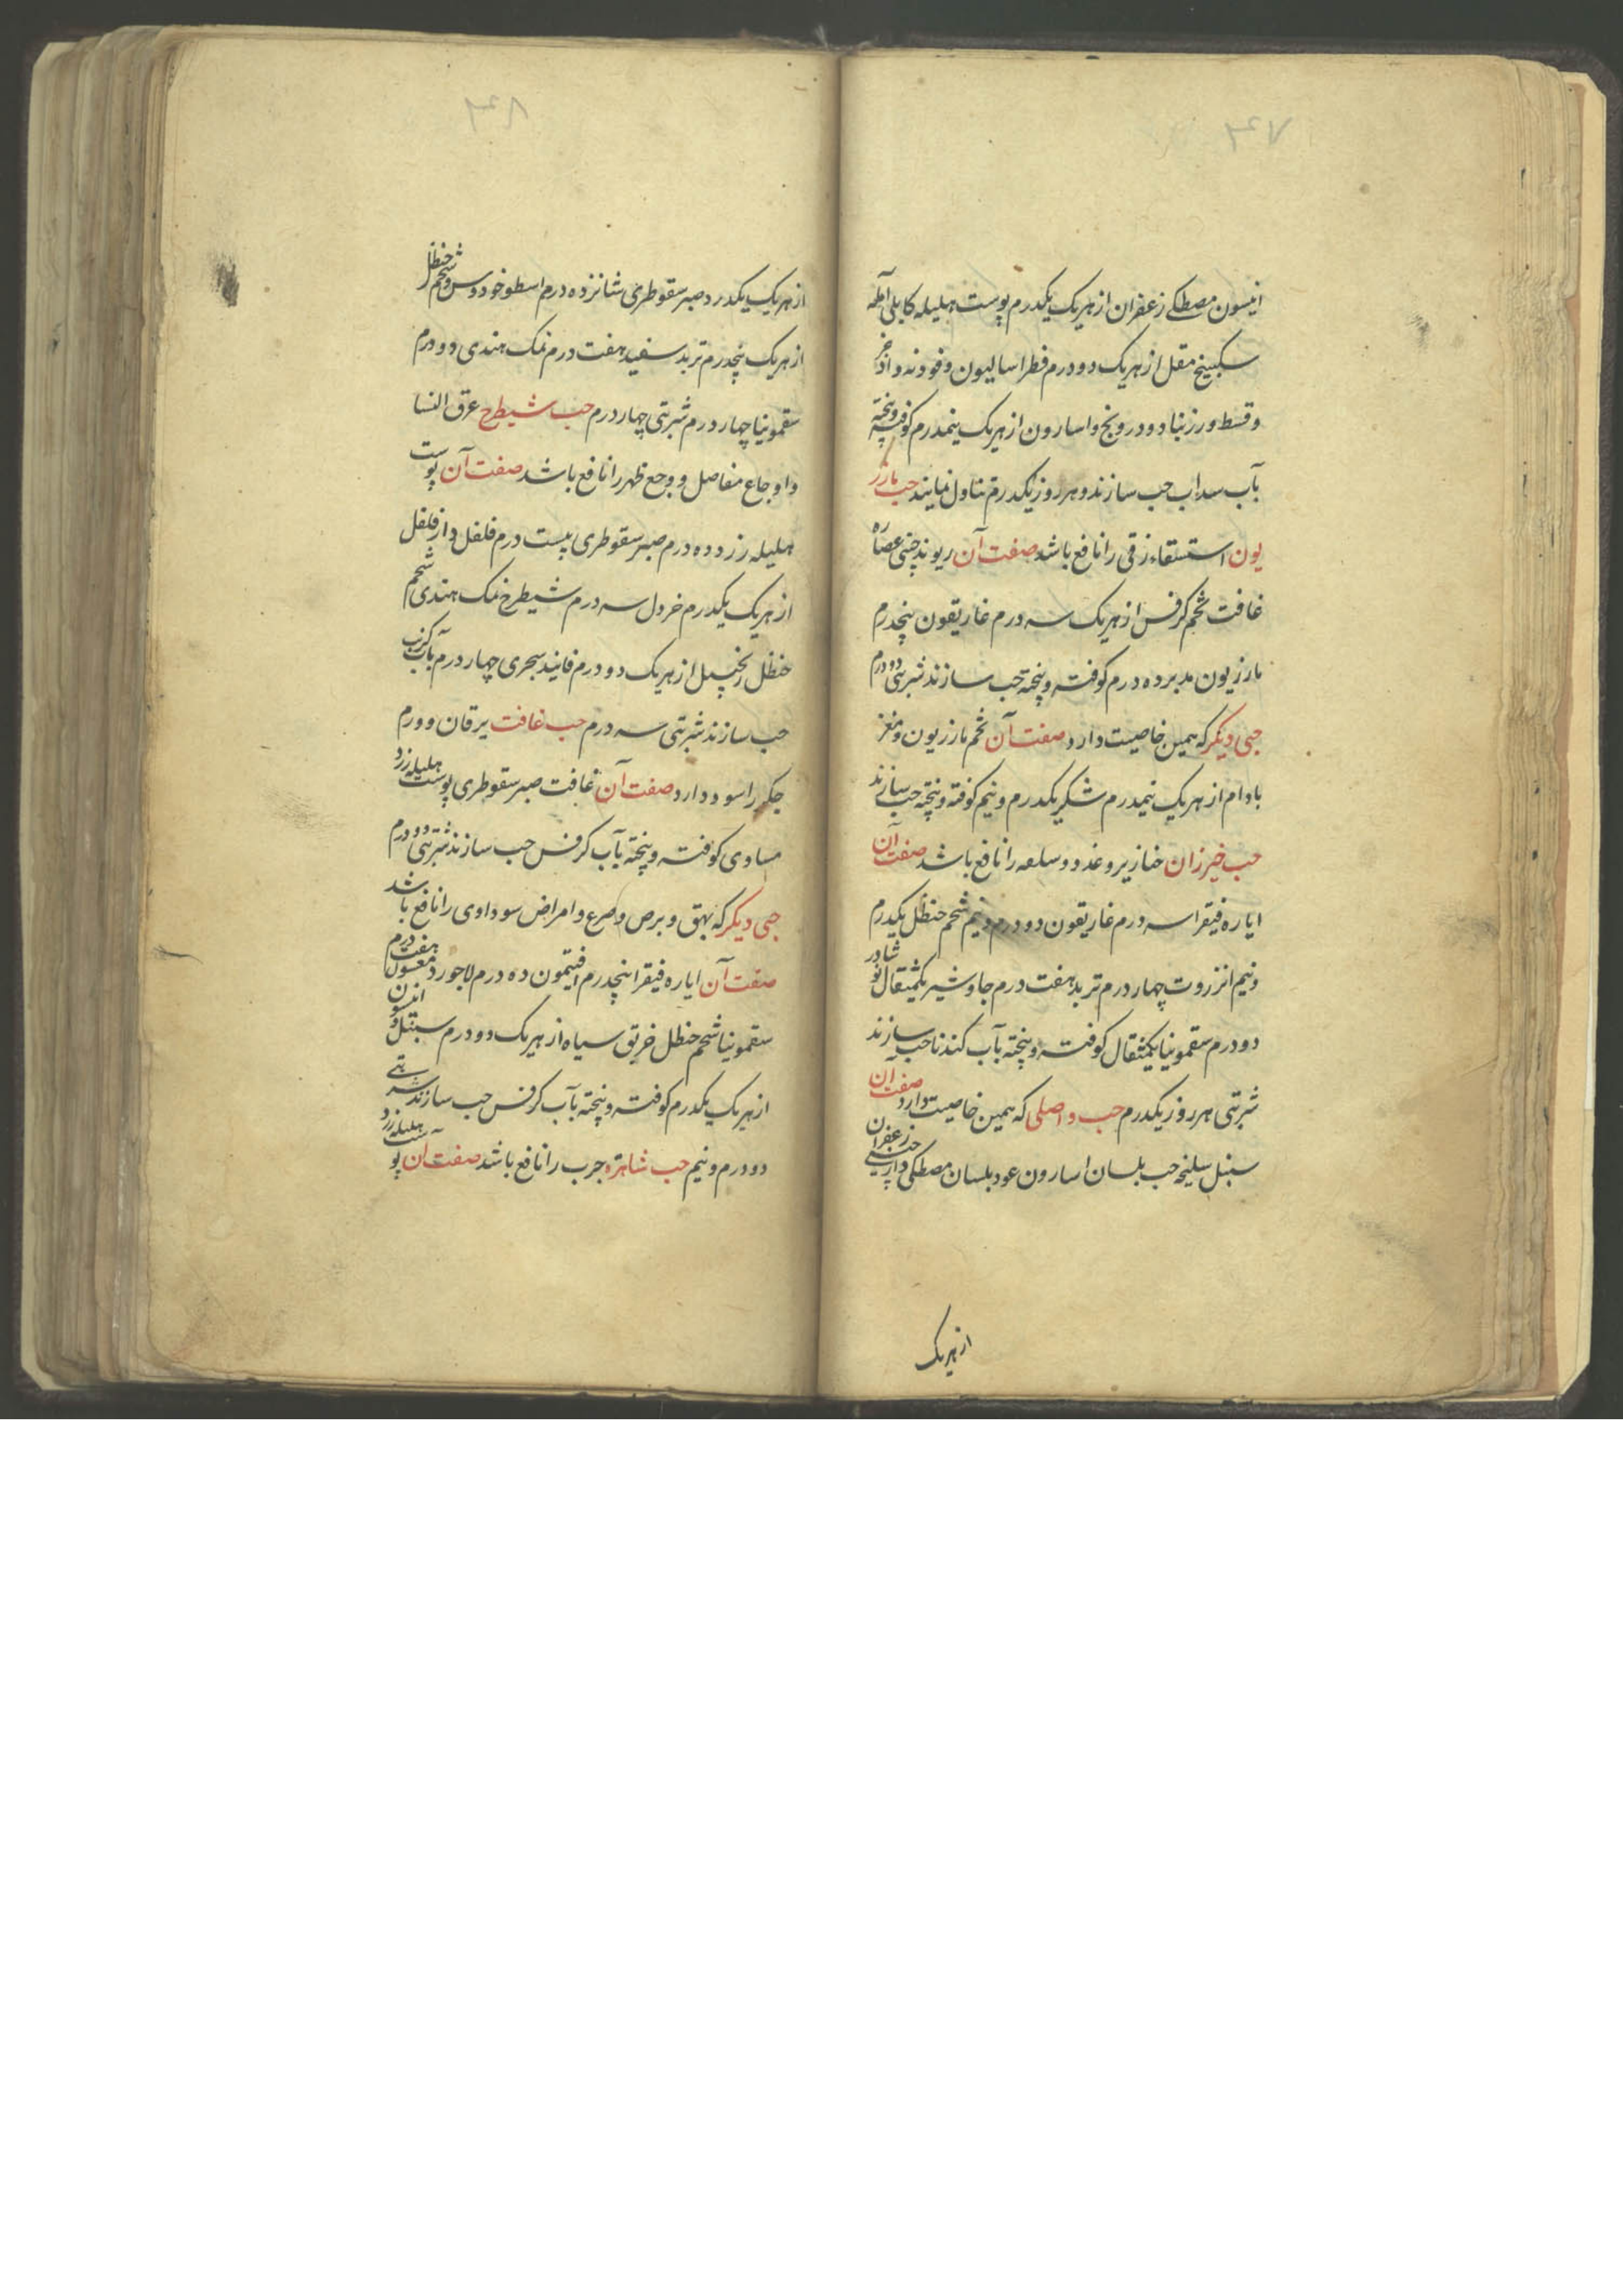 ۴۷
انیسون مصطکی زعفران از هریک یکدرم پوست هلیله کابلی آمله
سکبینج مقل از هریک دو درم فطراسالیون و فوو زند و اذخر
و قسط و رزنباد و درونج و اسارون از هریک نیمدرم کوفته و پخته
بآب سداب حب سازند و هر روز یکدرم تناول نمایند حب مازر
یون استسقاء زقی را نافع باشد صفت آن ریوند چینی عصاره
غافت تخم کرفس از هریک سه درم غاریقون پنجدرم
مازریون مدبر ده درم کوفته و پخته حب سازند شربتی دو درم
حبی دیگر که همین خاصیت دارد صفت آن تخم مازریون و مغز
بادام از هریک نیمدرم شکر یکدرم و نیم کوفته و پخته حب سازند
حب خیرزان خنازیر و غدد و سلعه را نافع باشد صفت آن
ایاره فیقرا سه درم غاریقون دو درم و نیم شحم حنظل یکدرم
و نیم انزروت چهار درم تربد هفت درم جاوشیر یکمثقال نوشادر
دو درم سقمونیا یکمثقال کوفته و پخته بآب کندنا حب سازند
شربتی هر روز یکدرم حب واصلی که همین خاصیت دارد صفت آن
سنبل سلیخه حب بلسان اسارون عود بلسان مصطکی دارچینی زعفران
از هریک
۴۸
از هریک یکدرد صبر سقوطری شانزده درم اسطوخودوس و شحم حنظل
از هریک پنجدرم تربد سفید هفت درم نمک هندی دو درم
سقمونیا چهار درم شربتی چهار درم حب شیطرج عرق النسا
و اوجاع مفاصل و وجع ظهر را نافع باشد صفت آن پوست
هلیله زرد ده درم صبر سقوطری بیست درم فلفل دارفلفل
از هریک یکدرم خردل سه درم شیطرج نمک هندی شحم
حنظل زنجبیل از هریک دو درم فانید سجری چهار درم بآب کرنب
حب سازند شربتی سه درم حب غافت یرقان و ورم
جگر را سود دارد صفت آن غافت صبر سقوطری پوست هلیله زرد
مساوی کوفته و پخته بآب کرفس حب سازند شربتی دو درم
حبی دیگر که بهق و برص و صرع و امراض سوداوی را نافع باشد
صفت آن ایاره فیقرا پنجدرم افتیمون ده درم لاجورد مغسول هفت درم
سقمونیا شحم حنظل خربق سیاه از هریک دو درم سنبل و انیسون
از هریک یکدرم کوفته و پخته بآب کرفس حب سازند شربتی
دو درم و نیم حب شاهتره جرب را نافع باشد صفت آن پوست هلیله زرد